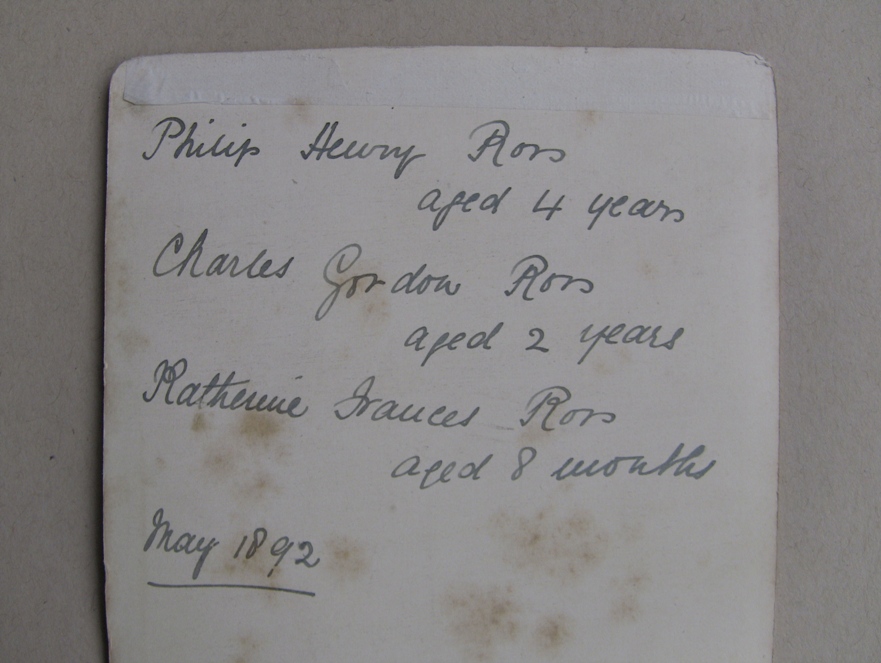 Philip Henry Ross
aged 4 years
Charles Gordon Ross
aged 2 years
Katherine Frances Ross
aged 8 months
May 1892